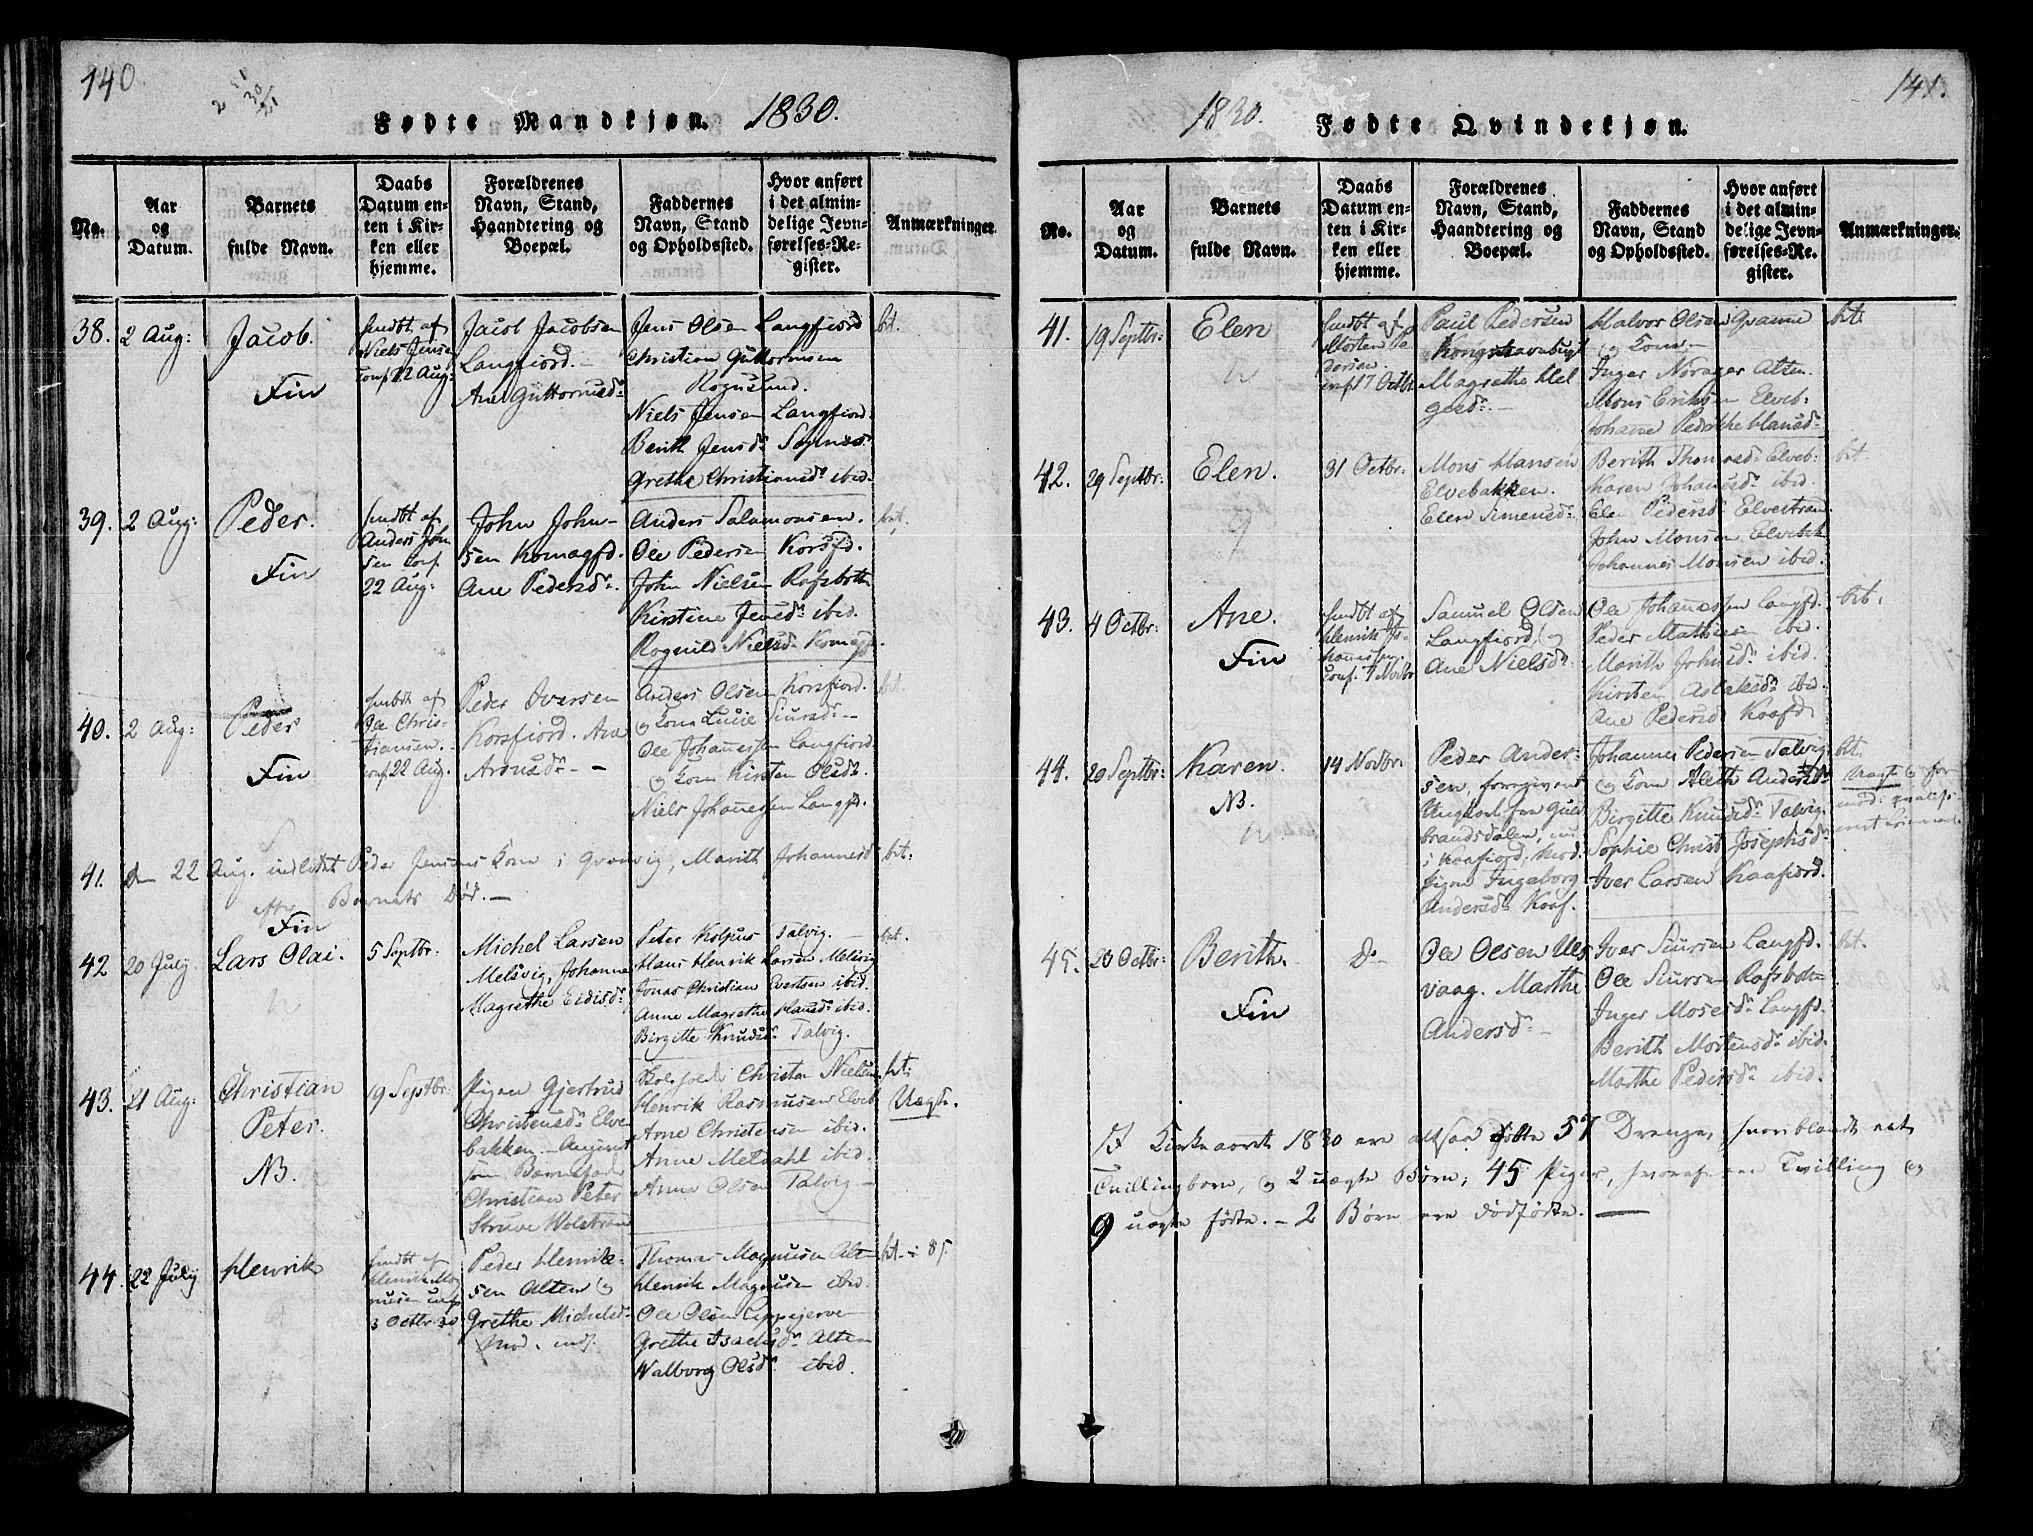 140
Fødte Mandkjøn. 1830.
No.
Aar
og
Datum.
Barnets
fulde Navn.
Daabs
Datum en-
ten i Kir-
ken eller
hjemme.
Forældrenes
Navn, Stand,
Haandtering og
Boepæl.
Faddernes
Navn, Stand
og Opholdssted.
Hvor anført
i det almin-
delige Jevn-
førelses-Re-
gister.
Anmærkninger.
38. 2 Aug:
Jacob.
Fin
hmdbt af
Niels Jensen
conf. 22 Aug:
Jacob Jacobsen
Langfiord.
Ane Guttormsd:
Jens Olsen Langfiord
Christian Guttormsen
Rognsund.
Niels Jensen Langfiord:
Berith Jensd:
Grethe Christiansd: ibid.
bt.
39. 2 Aug:
Peder.
Fin
hmdbt af
Anders John
sen conf.
22 Aug:
John John-
sen Komagfd.
Ane Pedersd:
Anders Salamonsen.
Ole Pedersen Korsfd.
John Nielsen Rafsbotn
Kirstine Jensd: ibid.
Rognild Nielsd: Komagfd.
bt.
40. 2 Aug:
Peder
Fin
hmdbt af
Ole Chris-
tiansen.
conf. 22 Aug.
Peder Iversen
Korsfiord. Ane
Aronsd: -
Anders Olsen Korsfiord.
og Kone Lucie Siursd: -
Ole Johannessen Langfiord
og Kone Kirsten Olsd:
Niels Johannessen Langfd.
bt.
41. d 22 Aug. indledet Peder Jensens Kone i Qvænvig, Marith Johannesd: bt:
efter Barnets Død. -
42 20 July
Fin
Lars Olai.
5 Septbr:
Michel Larsen
Melsvig, Johanne
Magrethe Eidisd:
Peter Kolpus Talvig.
Hans Henrik Larsen Melsvig
Jonas Christian Evertsen ibid.
Anne Magrethe Hansd: ibid.
Birgitte Knudsd: Talvig.
bt.
43. 21 Aug:
Christian
Peter.
NB.
19 Septbr:
Pigen Gjertrud
Christensd: Elve
bakken. - Angivet
som Barnefader
Christian Peter
Struve Wolstrand
Christen Nielsen
Henrik Rasmussen Elveb
Arne Christensen ibid.
Anne Metdahl ibid.
Anne Olsen Talvig -
bt:
Uægte.
44. 22 July
Henrik
hmdbt af
Henrik Mag
nusen conf
3 Octbr 30
Peder Henrik-
sen Alten og
Grethe Michelsd:
Thomas Magnusen Alten
Henrik Magnusen ibid.
Ole Olsen
Grethe Isachsd: Alten
Walborg Olsd: ibid.
bt. - 85
141.
1830. Fødte Qvindekjøn.
No.
Aar
og
Datum.
Barnets
fulde Navn.
Daabs
Datum en-
ten i Kir-
ken eller
hjemme.
Forældrenes
Navn, Stand,
Haandtering og
Boepæl.
Faddernes
Navn, Stand
og Opholdssted.
Hvor anført
i det almin-
delige Jevn-
førelses-Re-
gister.
Anmærkninger.
41. 19 Septbr:
Elen
hmdbt af
Morten Pe
dersen.
conf. 17 Octbr.
Paul Pedersen
Kongshavnbugt
Magrethe Hel
gesd: -
Halvor Olsen Granne
og Kone -
Inger Norager Alten.
Mons Eriksen Elveb:
Johanne Hansd:
bt:
42. 29 Septbr:
Elen.
31 Octbr:
Mons Hansen
Elvebakken.
Elen Simensd:
Berith Thomasd: Elveb:
Karen Johansd: ibid.
Ele Pedersd: Elvestrand
John Monsen Elvebak
Johannes Monsen ibid.
bt.
43. 4 Octbr:
Ane.
Fin
hmdbt af
Henrik Jo-
hannessen.
conf. 7 Novbr
Samuel Olsen
Langfiord og
Ane Nielsd:
Ole Johannessen Langfd.
Peder Mathisen ibid.
Marith Johnsd: ibid.
Kirsten Aslaksd: ibid.
Ane Pedersd: Kaafd
bt.
44. 20 Septbr:
Karen.
NB.
14 Novbr:
Peder Ander-
sen, foregivend
Ungkarl fra Guld
brandsdalen, nu
i Kaafiord, Mod.
Pigen Ingeborg
Andersd: Kaaf.
Johannes Pedersen Talvig
og Kone Aleth Andersd:
Birgitte Knudsd: Talvig.
Sophie Christ Josephsd:
Iver Larsen Kaafiord.
bt.
45. 20 Octbr:
Berith.
Fin
Do
Ole Olsen Ules
vaag. Marthe
Andersd: -
Iver Siursen Langfd.
Ole Siursen Rafsbotn
Inger Mosesd: Langfd.
Berith Mortensd: ibid.
Marthe Pedersd: ibid.
bt.
I Kirkeaaret 1830 ere altsaa fødte 57 Drenge, hvoriblandt eet
Tvillingbarn, og 2 uægte Børn; 45 Piger, hvoraf een Tvilling og
9 uægte fødte. - 2 Børn ere dødfødte. -